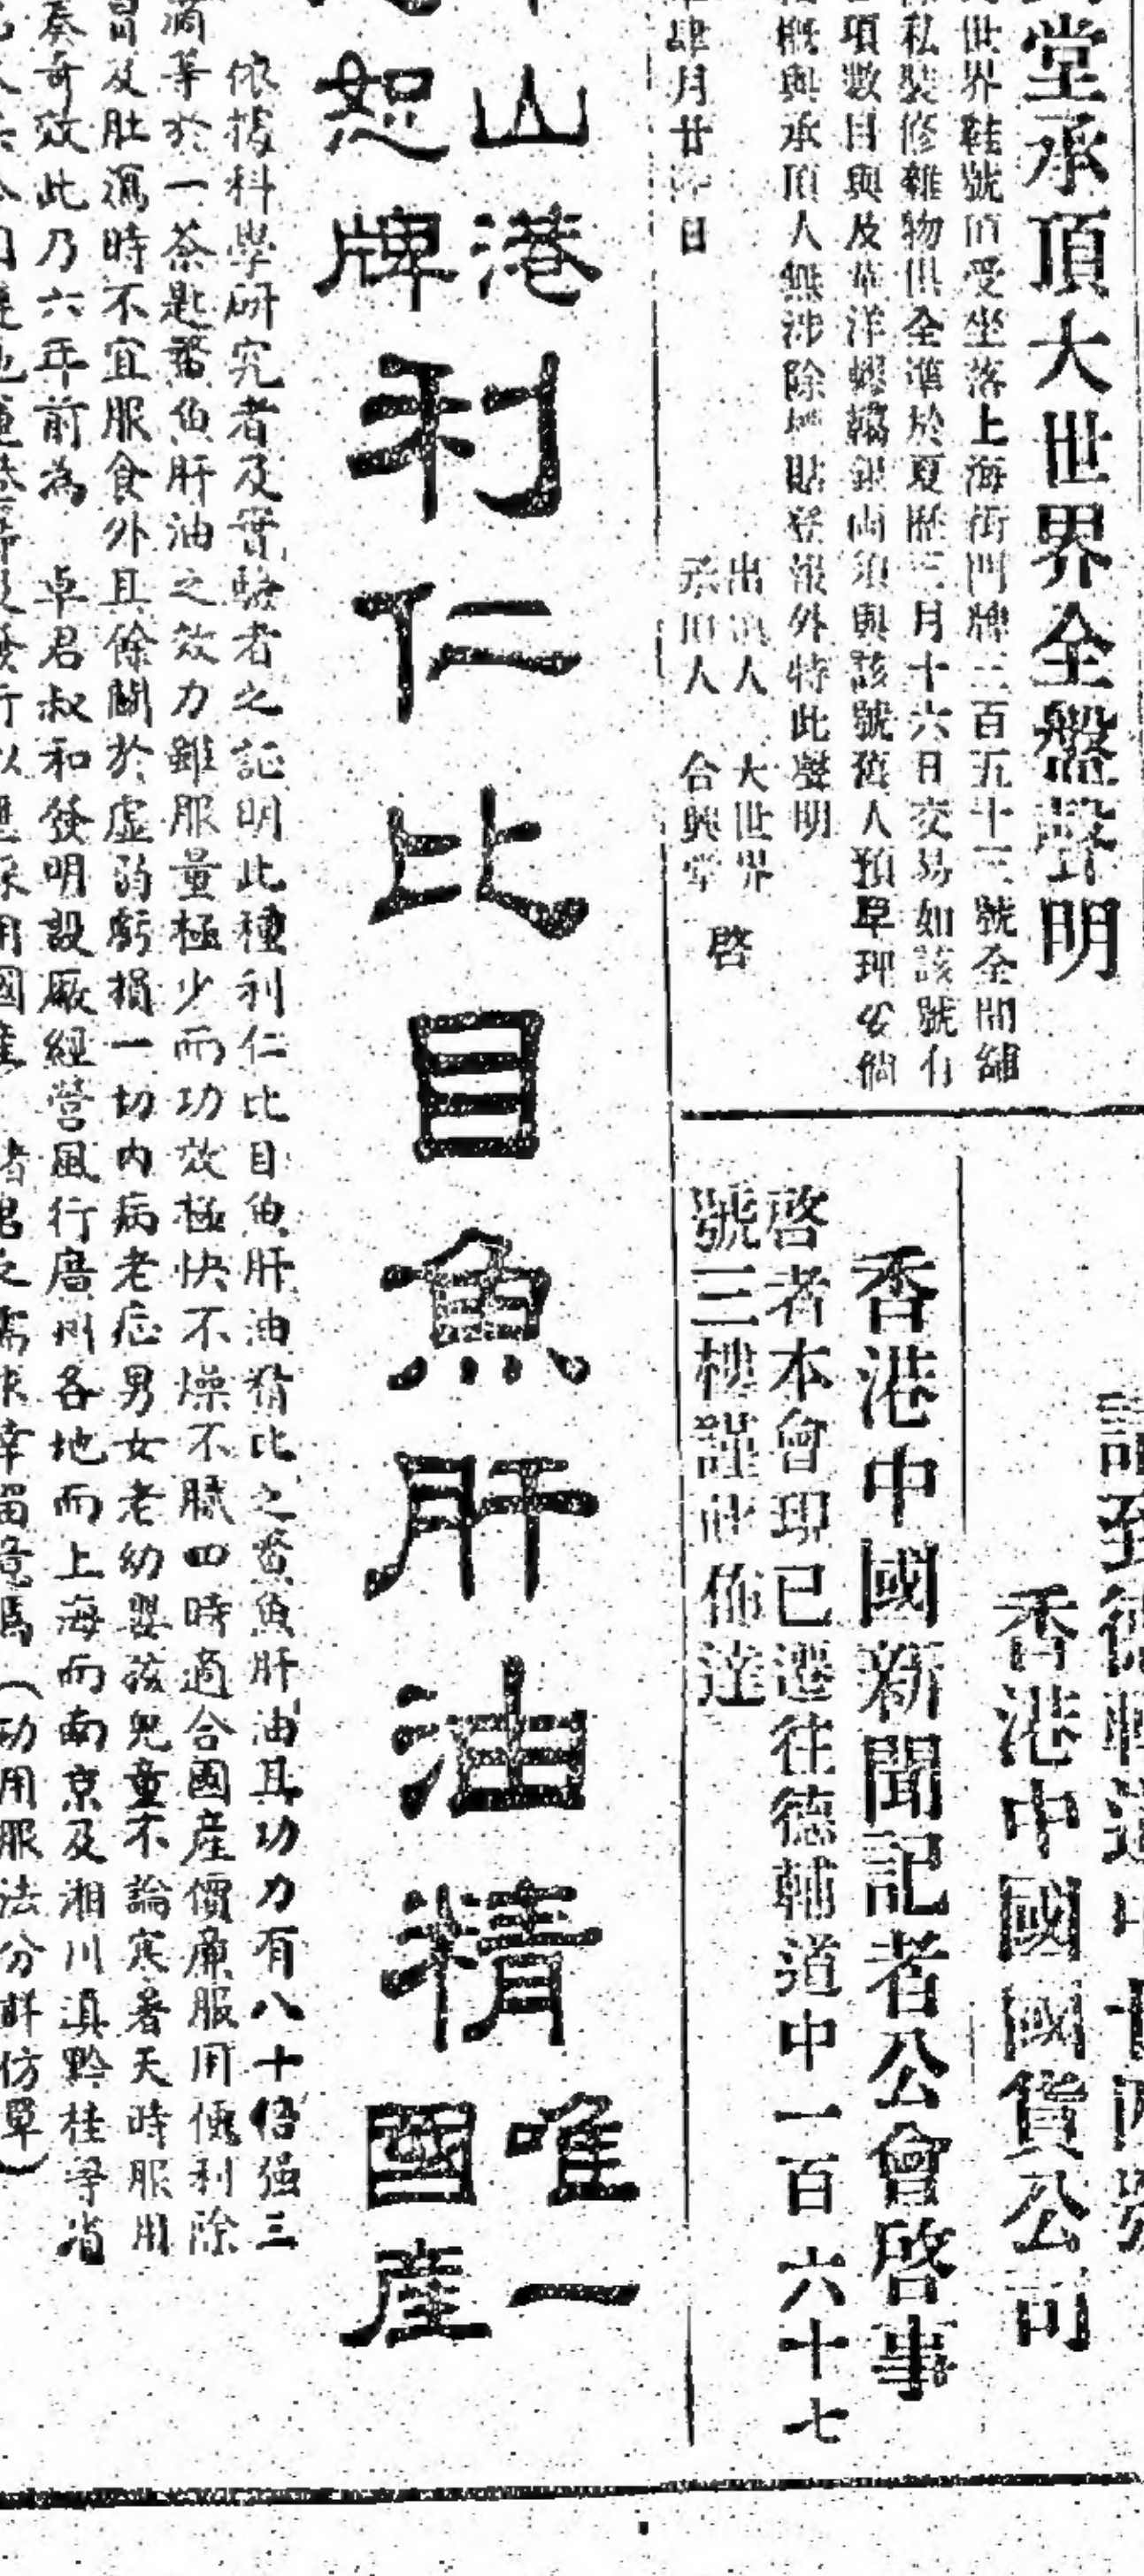 堂承頂大世界全盤聲明
世界鞋號頂受坐落上海街門牌三百五十三號全間舖
私裝修雜物俱全準於夏歷三月十六日交易如該號有
項數目與及華洋轇轕銀両須與該號舊人預早理妥倘
概與承頂人無涉除標貼登報外特此聲明
出頂人 大世界
承頂人 合興堂
啓
肆月廿 日
香港中國國貨公司
香港中國新聞記者公會啓事
啓者本會現已遷往德輔道中一百六十七
號三樓謹此佈達
山港
恕牌
利仁比目魚肝油精
唯一
國產
依據科學研究者及實驗者之証明此種利仁比目魚肝油精比之鰵魚肝油其功力有八十倍强三
滴等於一茶匙鰵魚肝油之效力雖服量極少而功效極快不燥不膩四時適合國産價廉服用便利除
冒及肚瀉時不宜服食外且餘關於虛弱虧損一切内病老症男女老幼嬰孩兒童不論寒暑天時服用
奏奇效此乃六年前為 卓君叔和發明設廠經營風行廣州各地而上海而南京及湘川滇黔桂等省
諸君之需求幸留意焉(功用服法分詳仿單)